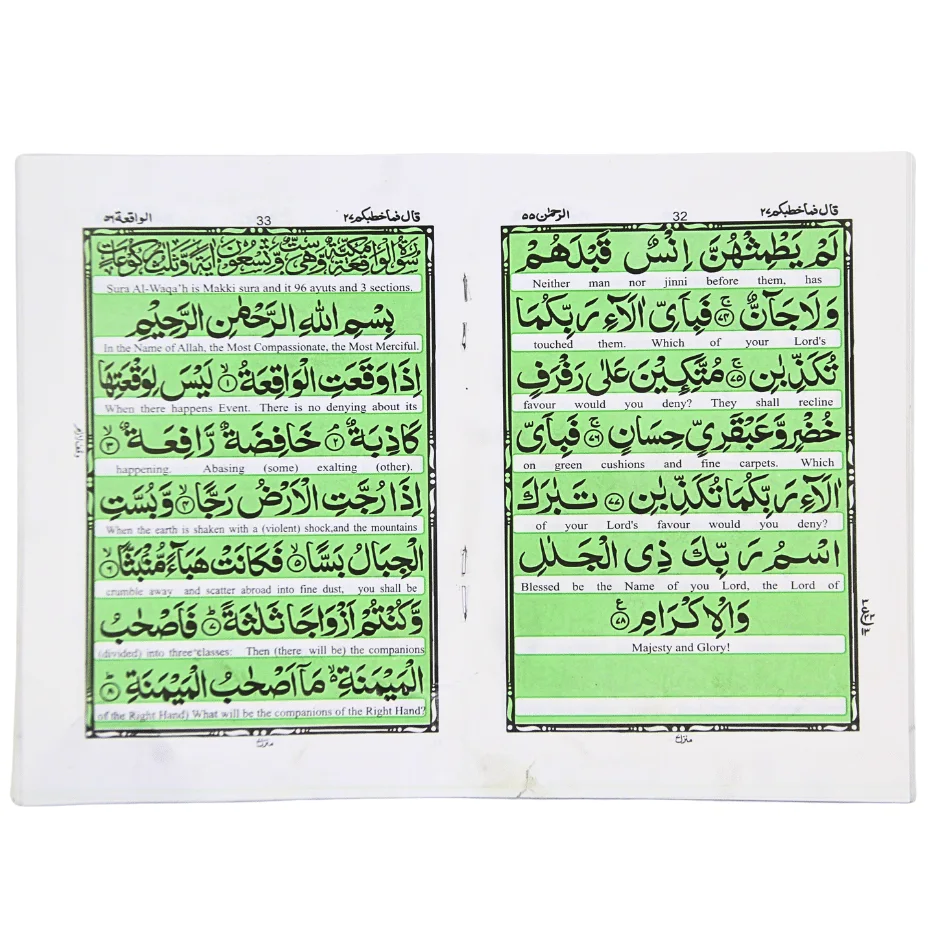 قال فماخطبكم ٢٧ 32 الرحمٰن ٥٥
لَمْ يَطْمِثْهُنَّ اِنْسٌ قَبْلَهُمْ
Neither man nor jinni before them, has
وَلَا جَآنٌّ ۚ ﴿٧٤﴾ فَبِاَىِّ اٰلَآءِ رَبِّكُمَا
touched them. Which of your Lord's
تُكَذِّبٰنِ ۚ ﴿٧٥﴾ مُتَّكِـِٕيْنَ عَلٰى رَفْرَفٍ
favour would you deny? They shall recline
خُضْرٍ وَّعَبْقَرِىٍّ حِسَانٍ ۚ ﴿٧٦﴾ فَبِاَىِّ
on green cushions and fine carpets. Which
اٰلَآءِ رَبِّكُمَا تُكَذِّبٰنِ ﴿٧٧﴾ تَبٰرَكَ
of your Lord's favour would you deny?
اسْمُ رَبِّكَ ذِى الْجَلٰلِ
Blessed be the Name of you Lord, the Lord of
وَالْاِكْرَامِ ﴿٧٨﴾ ع
Majesty and Glory!
منزل
قال فماخطبكم ٢٧ 33 الواقعة ٥٦
سُوْرَةُ الْوَاقِعَةِ مَكِّيَّةٌ وَّهِىَ سِتٌّ وَّتِسْعُوْنَ اٰيَةً وَّثَلٰثُ رُكُوْعَاتٍ
Sura Al-Waqa'h is Makki sura and it 96 ayuts and 3 sections.
بِسْمِ اللهِ الرَّحْمٰنِ الرَّحِيْمِ
In the Name of Allah, the Most Compassionate, the Most Merciful.
اِذَا وَقَعَتِ الْوَاقِعَةُ ۙ ﴿١﴾ لَيْسَ لِوَقْعَتِهَا
When there happens Event. There is no denying about its
كَاذِبَةٌ ۘ ﴿٢﴾ خَافِضَةٌ رَّافِعَةٌ ۙ ﴿٣﴾
happening. Abasing (some) exalting (other).
اِذَا رُجَّتِ الْاَرْضُ رَجًّا ۙ ﴿٤﴾ وَّبُسَّتِ
When the earth is shaken with a (violent) shock,and the mountains
الْجِبَالُ بَسًّا ۙ ﴿٥﴾ فَكَانَتْ هَبَآءً مُّنْۢبَثًّا ۙ ﴿٦﴾
crumble away and scatter abroad into fine dust, you shall be
وَّكُنْتُمْ اَزْوَاجًا ثَلٰثَةً ؕ ﴿٧﴾ فَاَصْحٰبُ
(divided) into three classes: Then (there will be) the companions
الْمَيْمَنَةِ ۙ مَاۤ اَصْحٰبُ الْمَيْمَنَةِ ؕ ﴿٨﴾
of the Right Hand) What will be the companions of the Right Hand?
منزل